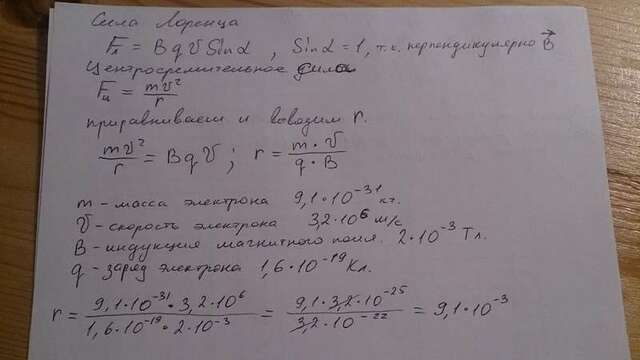 Сила Лоренца
Fл = B q V Sinα , Sinα = 1, т.к. перпендикулярно B⃗
Центростремительное сила
Fц = mV²/r
приравниваем и выводим r.
mV²/r = B q V ; r = m · V / q · B
m – масса электрона 9,1 · 10⁻³¹ кг.
V – скорость электрона 3,2 · 10⁶ м/с
B – индукция магнитного поля. 2 · 10⁻³ Тл.
q – заряд электрона 1,6 · 10⁻¹⁹ Кл.
r = 9,1 · 10⁻³¹ · 3,2 · 10⁶ / 1,6 · 10⁻¹⁹ · 2 · 10⁻³ = 9,1 · 3,2 · 10⁻²⁵ / 3,2 · 10⁻²² = 9,1 · 10⁻³